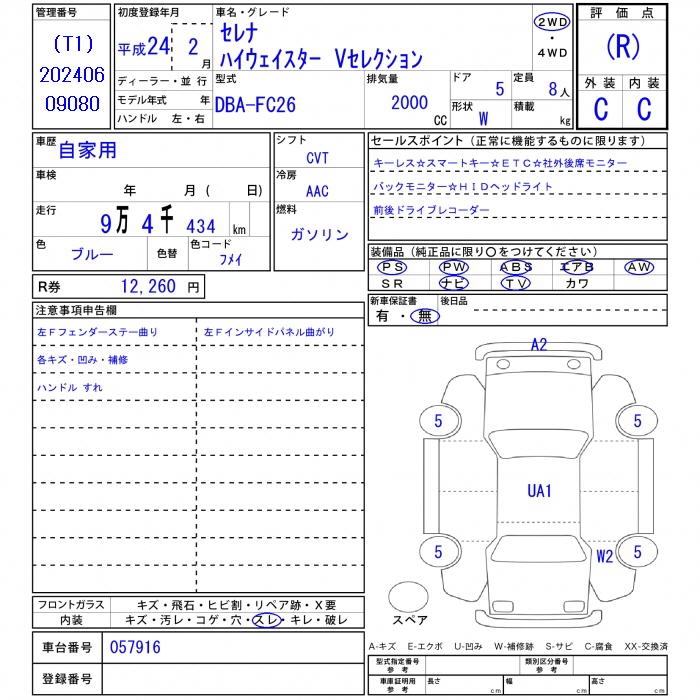 管理番号
(T1)
202406
09080
初度登録年月
平成24
2
年
月
ディーラー・並 行
モデル年式 年
ハンドル 左・右
車名・グレード
セレナ
ハイウェイスター Vセレクション
2WD
・
4WD
型式
DBA-FC26
排気量
2000
CC
ドア
5
定員
8人
形状
W
積載
kg
評 価 点
(R)
外 装 内 装
C C
車歴
自家用
車検
年 月 ( 日)
走行
9万 4千 434 km
色
ブルー
色替
色コード
フメイ
シフト
CVT
冷房
AAC
燃料
ガソリン
R券 12,260 円
セールスポイント (正常に機能するものに限ります)
キーレス☆スマートキー☆ETC☆社外後席モニター
バックモニター☆HIDヘッドライト
前後ドライブレコーダー
装備品 (純正品に限り〇をつけてください)
PS PW ABS エアB AW
SR ナビ TV カワ
新車保証書
有 ・ 無
後日品
注意事項申告欄
左Fフェンダーステー曲り
左Fインサイドパネル曲がり
各キズ・凹み・補修
ハンドル すれ
A2
5
5
UA1
5
W2
5
スペア
フロントガラス
キズ・飛石・ヒビ割・リペア跡・X要
内装
キズ・汚レ・コゲ・穴・スレ・キレ・破レ
車台番号
057916
登録番号
A-キズ E-エクボ U-凹み W-補修跡 S-サビ C-腐食 XX-交換済
型式指定番号
参 考
類別区分番号
参 考
車庫証明用
参 考
長さ
cm
幅
cm
高さ
cm